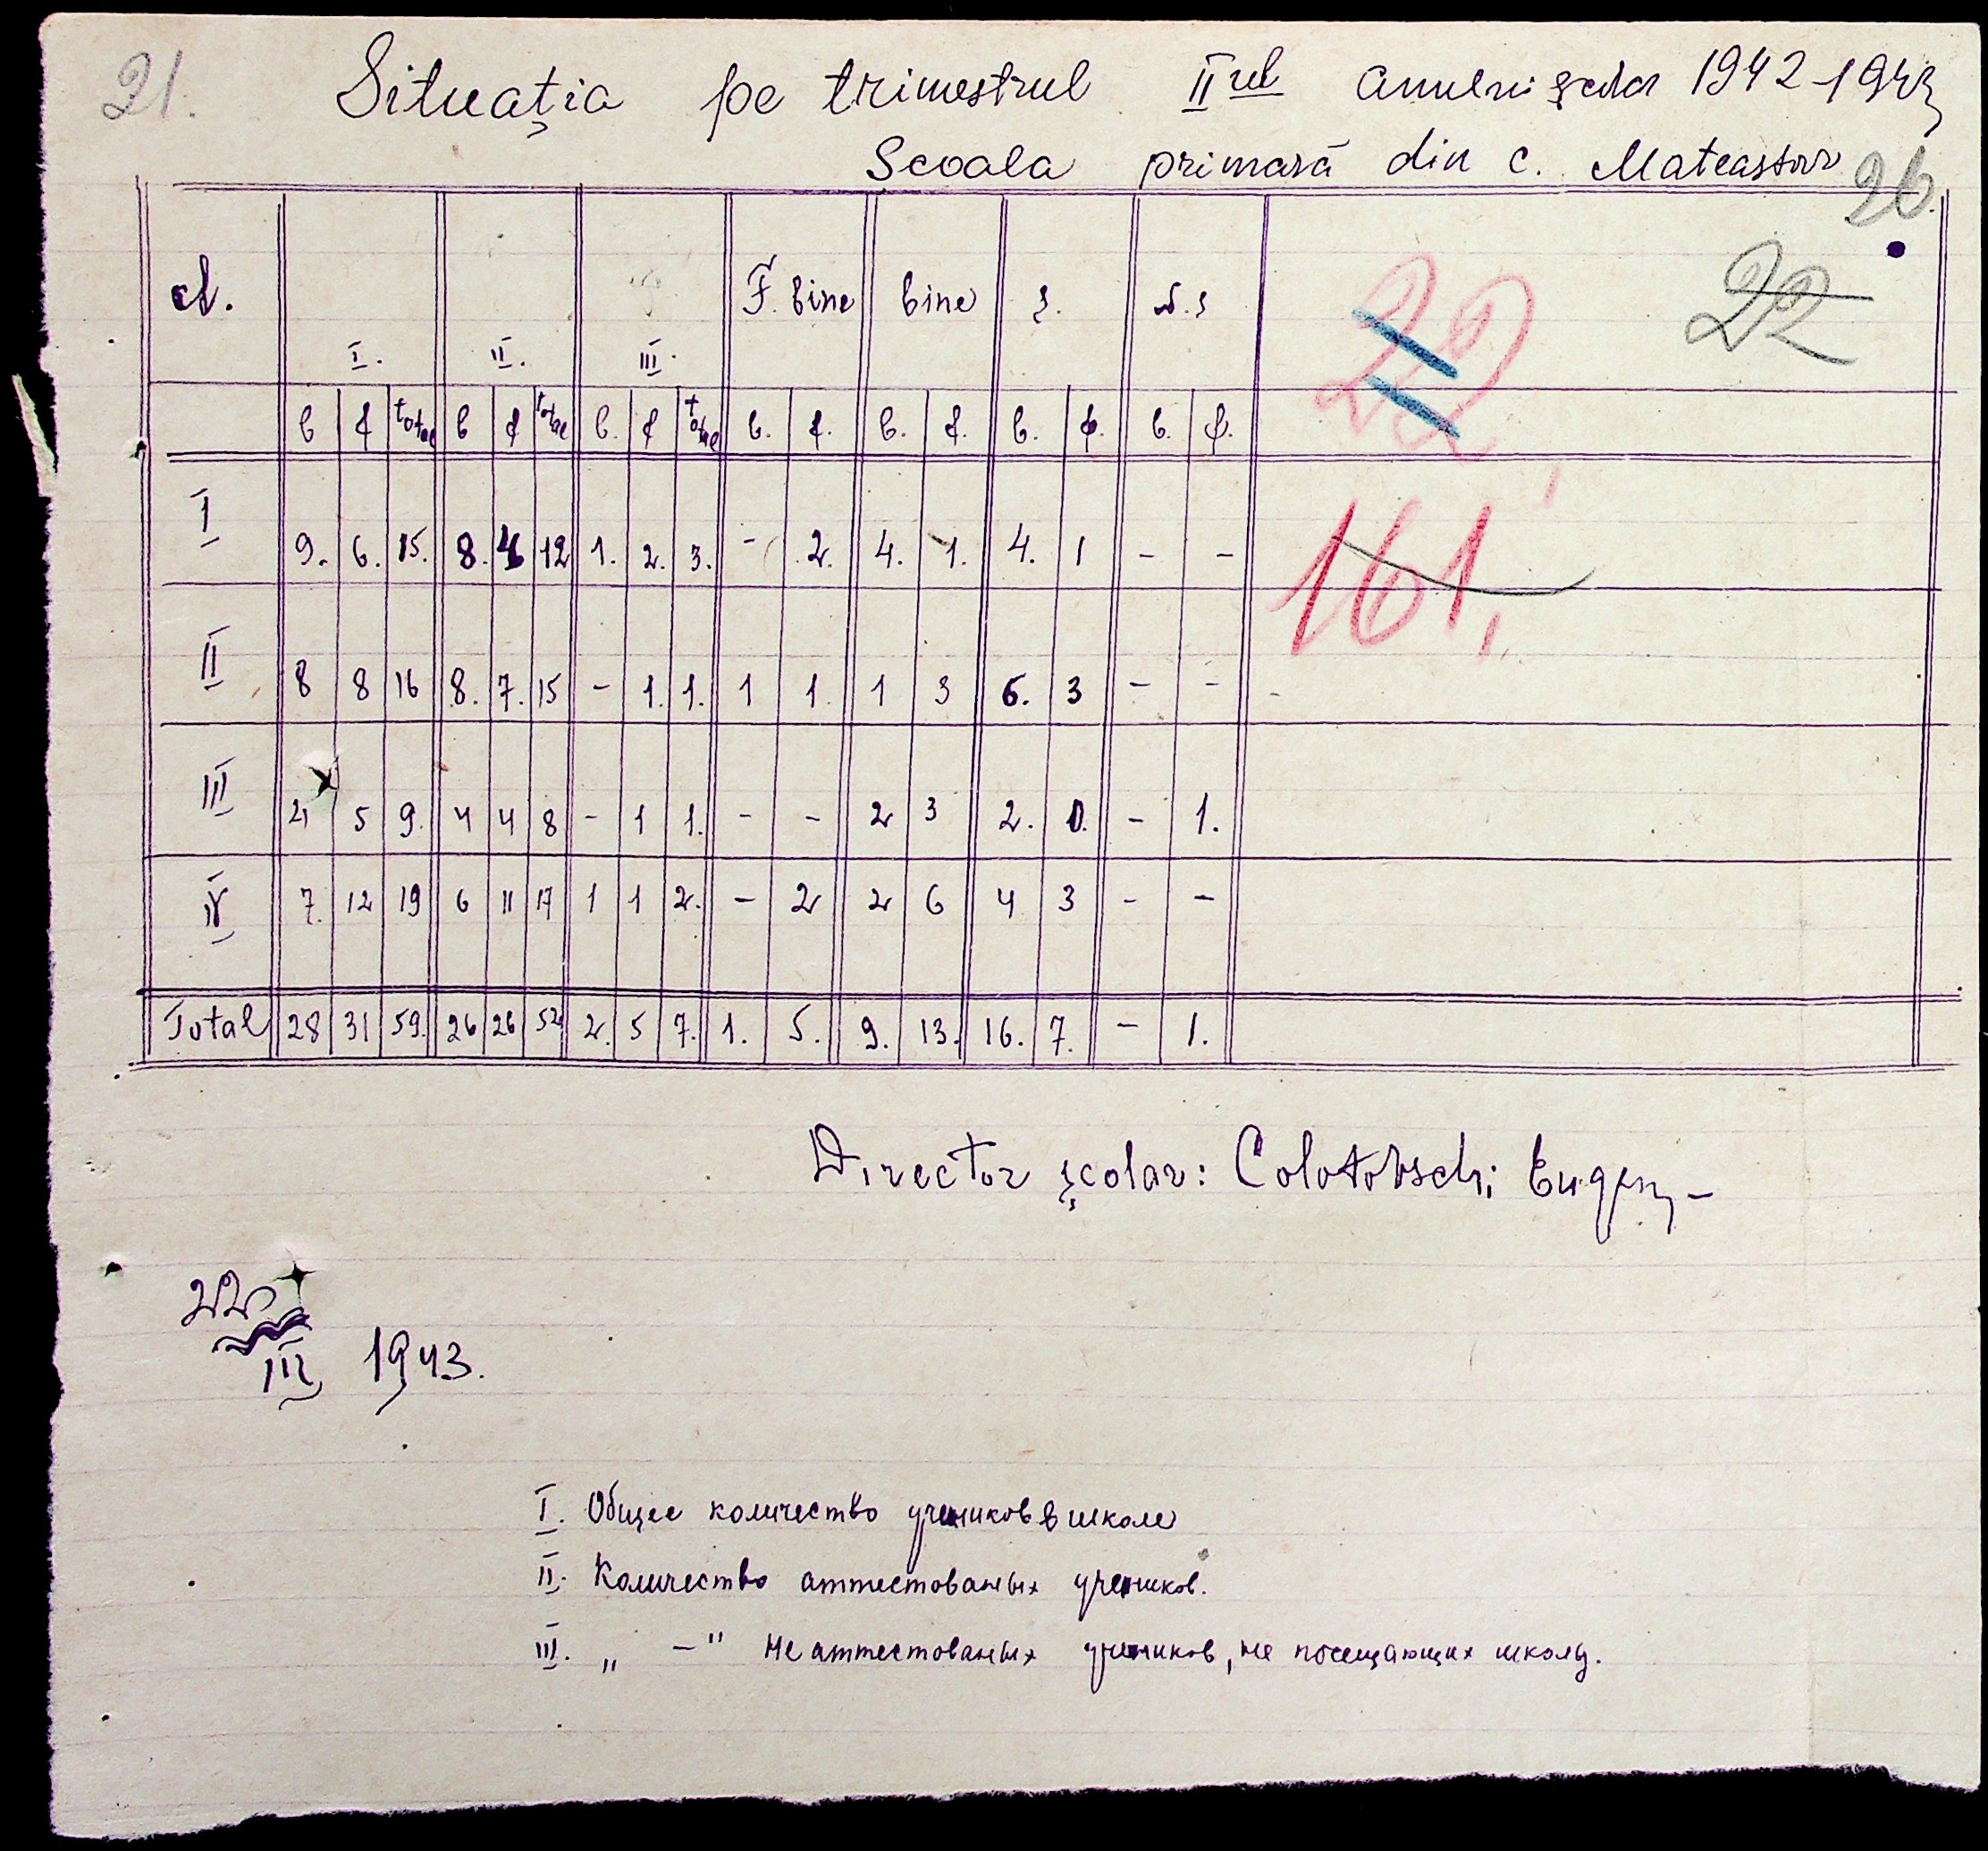 21.
Situația pe trimestrul II ul anului școlar 1942-1943
Școala primară din c. Mateastar
26.
cl. I. II. III. F. bine bine s. n.s 22 22
b f total b f total b. f total b. f. b. f. b. f. b. f.
I 9. 6. 15. 8. 4 12 1. 2. 3. - 2. 4. 1. 4. 1 - - 161.
II 8 8 16 8. 7. 15 - 1. 1. 1 1. 1 3 6. 3 - -
III 4 5 9. 4 4 8 - 1 1. - - 2 3 2. 1. - 1.
IV 7. 12 19 6 11 17 1 1 2. - 2 2 6 4 3 - -
Total 28 31 59. 26 26 52 2. 5 7. 1. 5. 9. 13. 16. 7. - 1.
Director școlar: Colotovschi Eugen -
22
III 1943.
I. Общее количество учеников в школе
II. Количество аттестованых учеников.
III. „ -" Не аттестованых учеников, не посещающих школу.